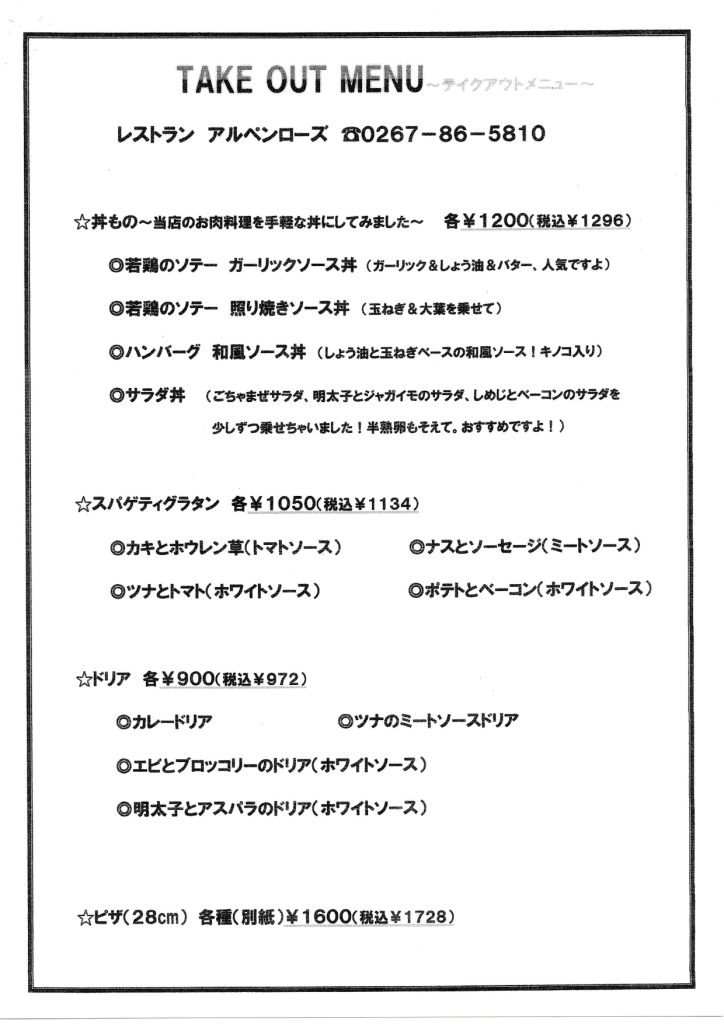 TAKE OUT MENU～テイクアウトメニュー～
レストラン アルペンローズ ☎0267－86－5810
☆丼もの～当店のお肉料理を手軽な丼にしてみました～ 各￥1200(税込￥1296)
◎若鶏のソテー ガーリックソース丼 （ガーリック＆しょう油＆バター、人気ですよ）
◎若鶏のソテー 照り焼きソース丼 （玉ねぎ＆大葉を乗せて）
◎ハンバーグ 和風ソース丼 （しょう油と玉ねぎベースの和風ソース！キノコ入り）
◎サラダ丼 （ごちゃまぜサラダ、明太子とジャガイモのサラダ、しめじとベーコンのサラダを
少しずつ乗せちゃいました！半熟卵もそえて。おすすめですよ！）
☆スパゲティグラタン 各￥1050(税込￥1134)
◎カキとホウレン草(トマトソース) ◎ナスとソーセージ(ミートソース)
◎ツナとトマト(ホワイトソース) ◎ポテトとベーコン(ホワイトソース)
☆ドリア 各￥900(税込￥972)
◎カレードリア ◎ツナのミートソースドリア
◎エビとブロッコリーのドリア(ホワイトソース)
◎明太子とアスパラのドリア(ホワイトソース)
☆ピザ(28cm) 各種(別紙)￥1600(税込￥1728)